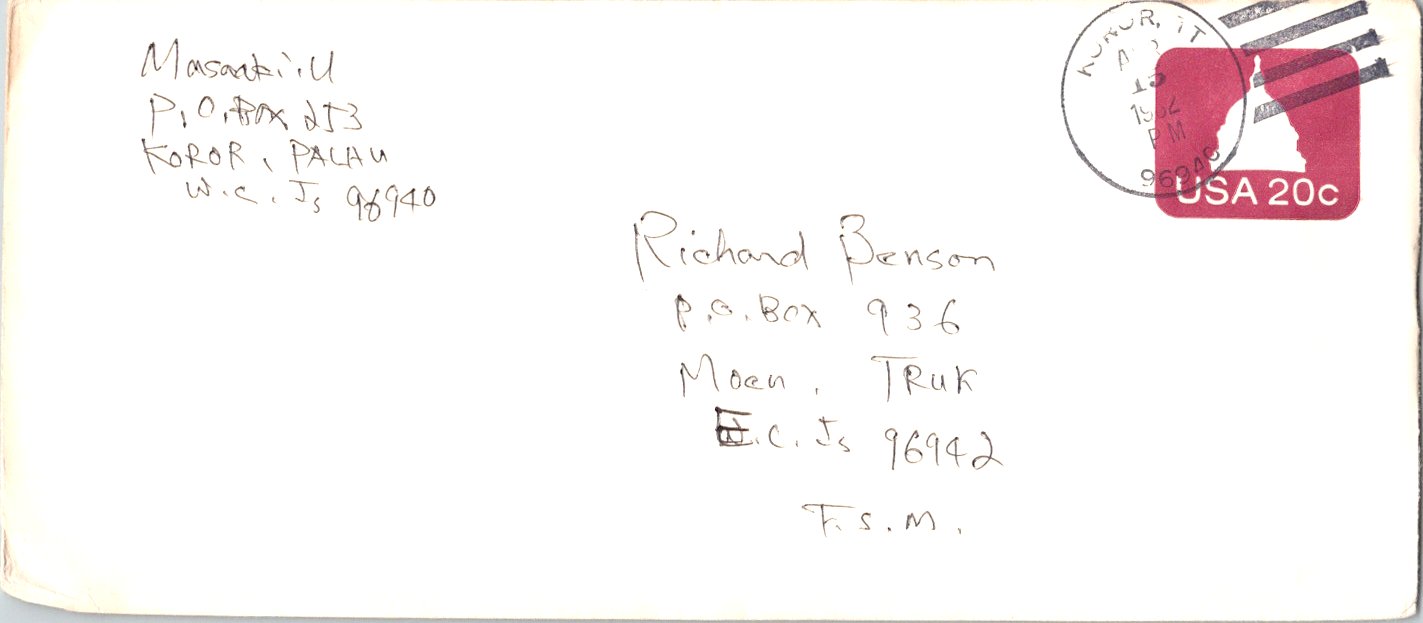 Masaaki.U
P.O.Box 253
KOROR, PALAU
W.C. Is 96940
KOROR, TT
15
1982
PM
96940
USA 20c
Richard Benson
P.O. Box 936
Moen, TRUK
E.C. Is 96942
F.S.M.